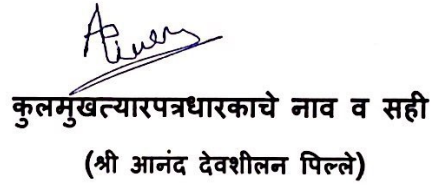 कुलमुखत्यारपत्रधारकाचे नाव व सही
(श्री आनंद देवशीलन पिल्ले)